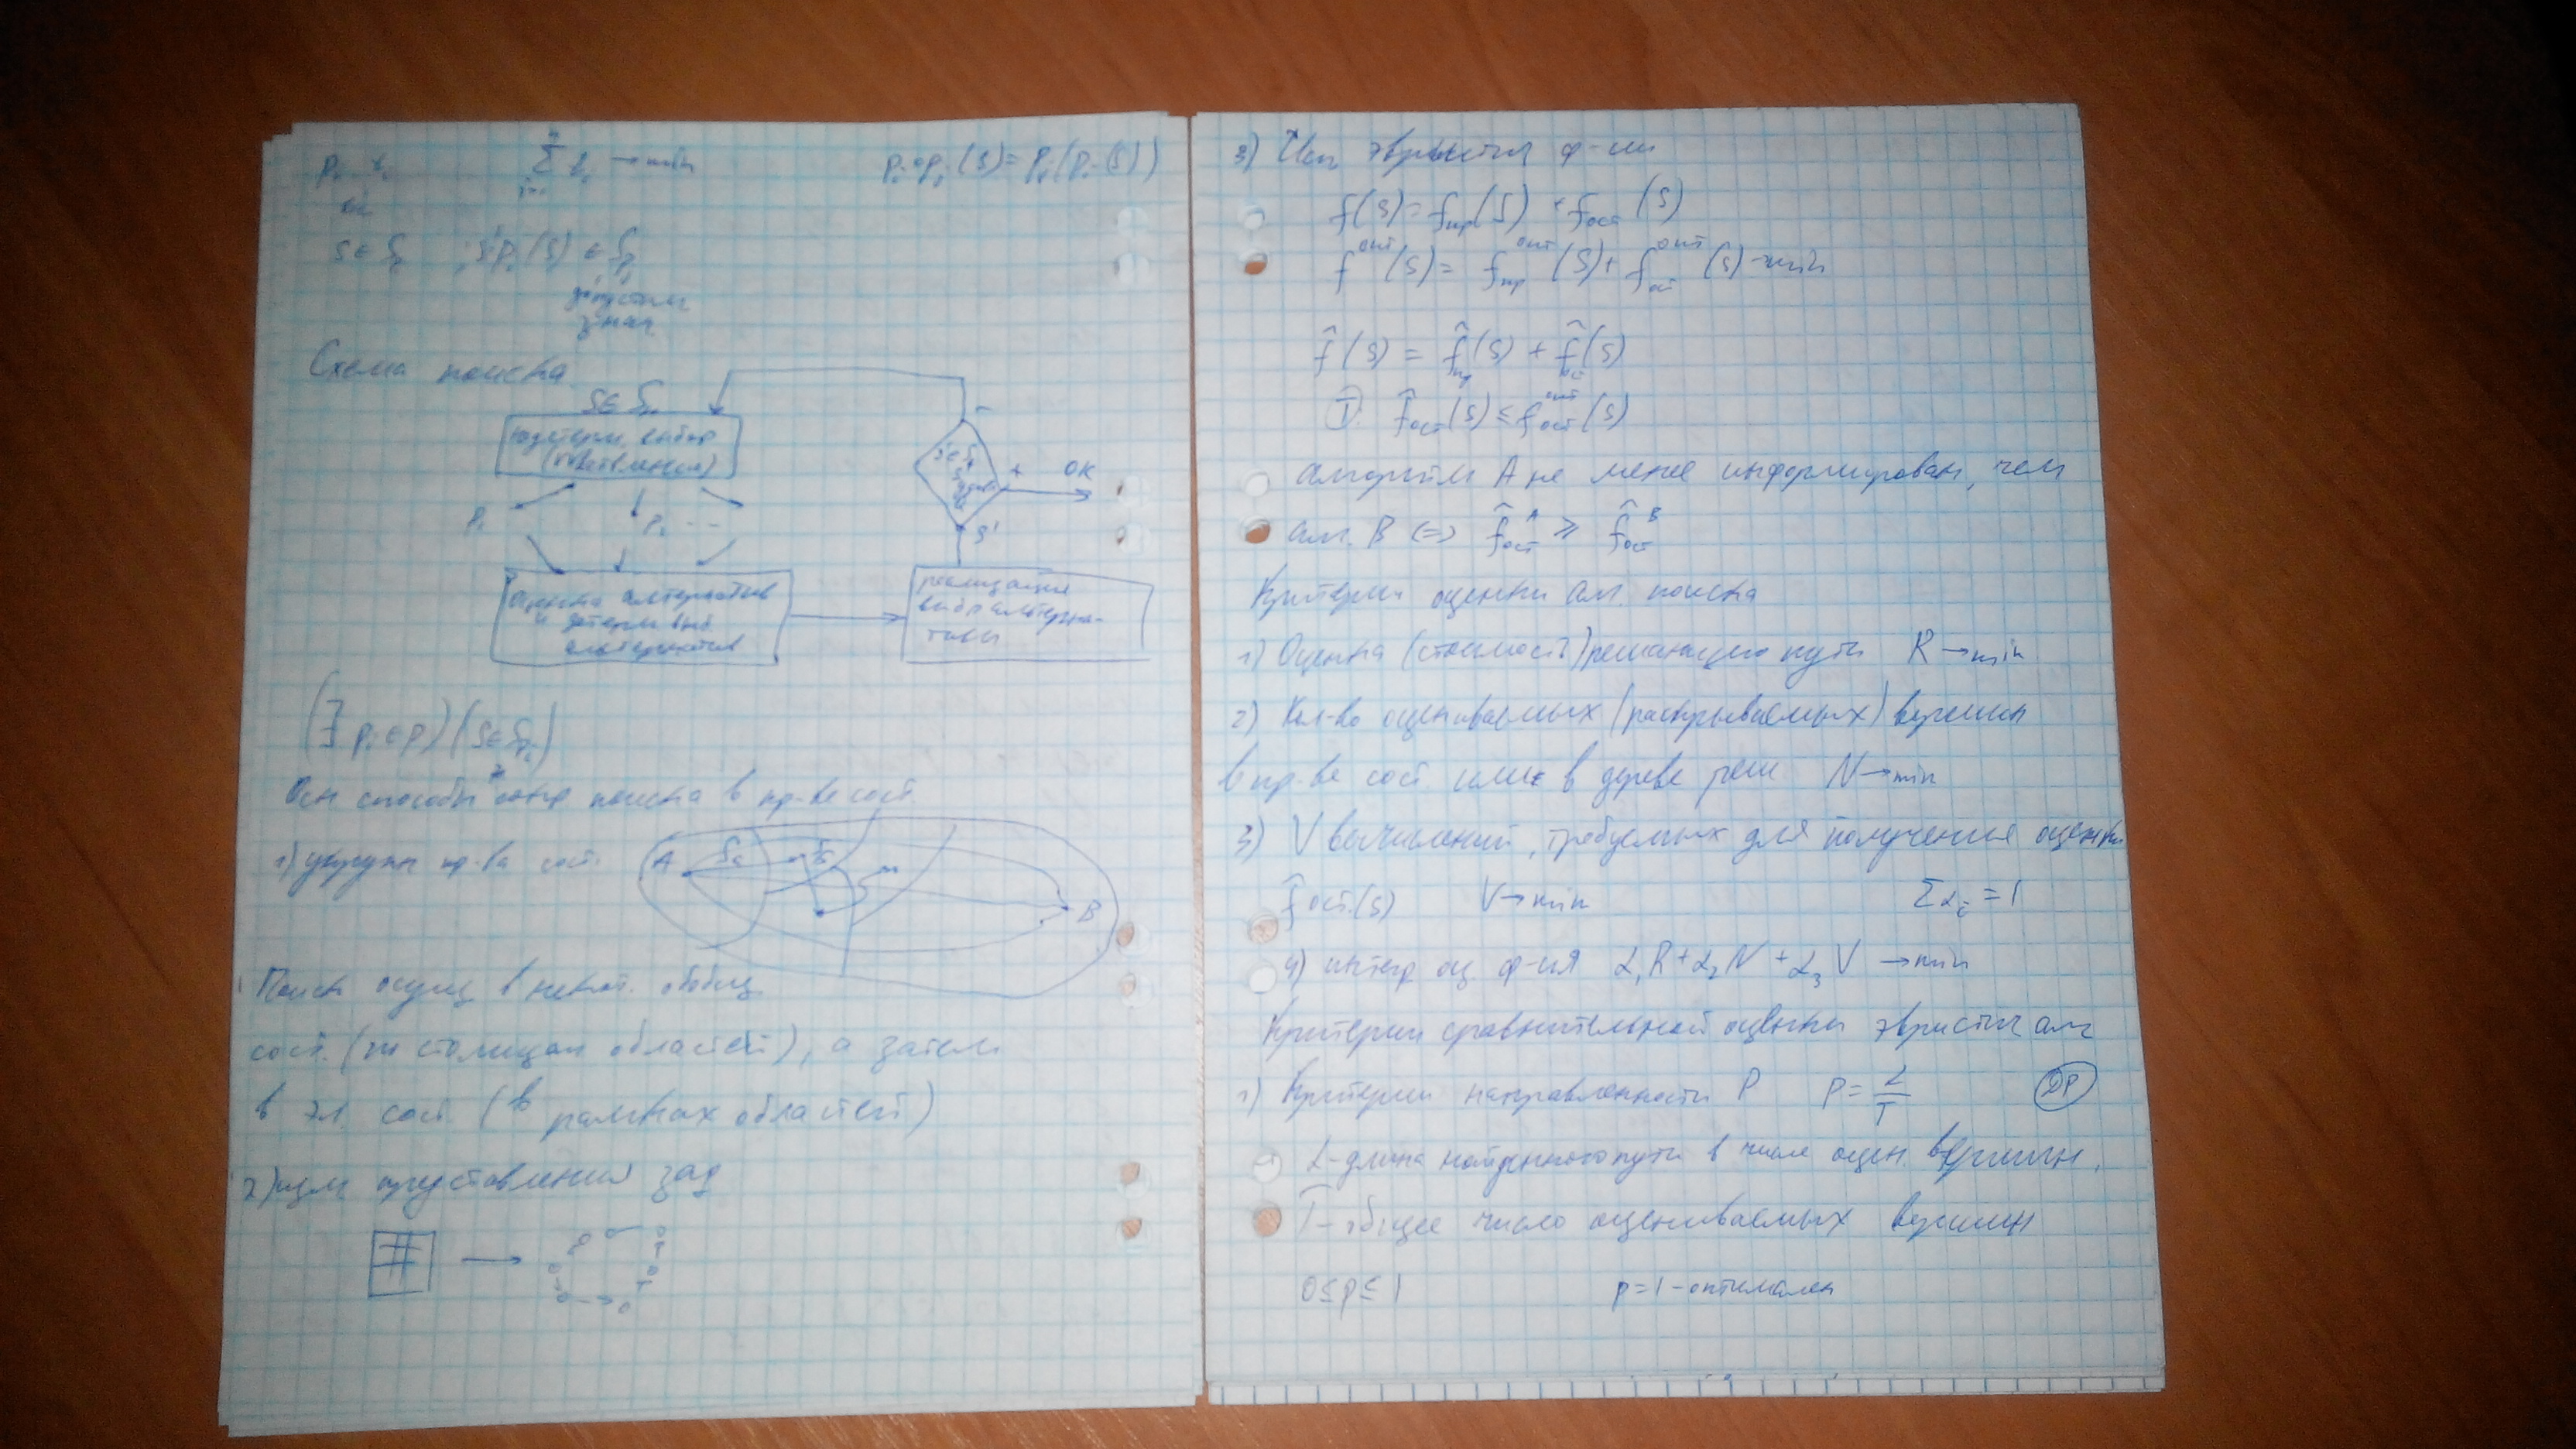 Σ tᵢ → min
pᵢ∘pⱼ(S) = pⱼ(pᵢ(S))
допустим
Схема поиска
S ∈ S
выбор
pᵢ
S'
+ OK
−
оценка альтернатив
и детерм выб
альтернатив
реализация
выбр альтерна-
тивы
(∃ pᵢ ∈ P)(S ∈ Spᵢ)
Осн способы сокр поиска в пр-ве сост.
1) укрупн пр-ва сост.
A
B
Поиск осущ в некот. обобщ
сост. (по столицам областей), а затем
в эл. сост. (в рамках областей)
2) изм представления зад
3) Исп эвристич ф-ии
f(S) = fпр(S) + fост(S)
fᵒᵖᵗ(S) = fпр(S) + fост(S) – min
f̂(S) = f̂пр(S) + f̂ост(S)
f̂ост(S) ≤ fост(S)
алгоритм A не менее информирован, чем
алг. B ⇔ f̂ᴬост ≥ f̂ᴮост
Критерии оценки алг. поиска
1) Оценка (стоимость) решающего пути R → min
2) Кол-во оцениваемых (раскрываемых) вершин
в пр-ве сост. или в дереве реш N → min
3) V вычислений, требуемых для получения оценки
f̂ост.(S) V → min Σαᵢ = 1
4) интегр оц ф-ия α₁R + α₂N + α₃V → min
Критерии сравнительной оценки эвристич алг
1) Критерии направленности P P = L/T ДР
L - длина найденного пути в числе оцен. вершин,
T - общее число оцениваемых вершин
0 ≤ p ≤ 1 p = 1 – оптимален